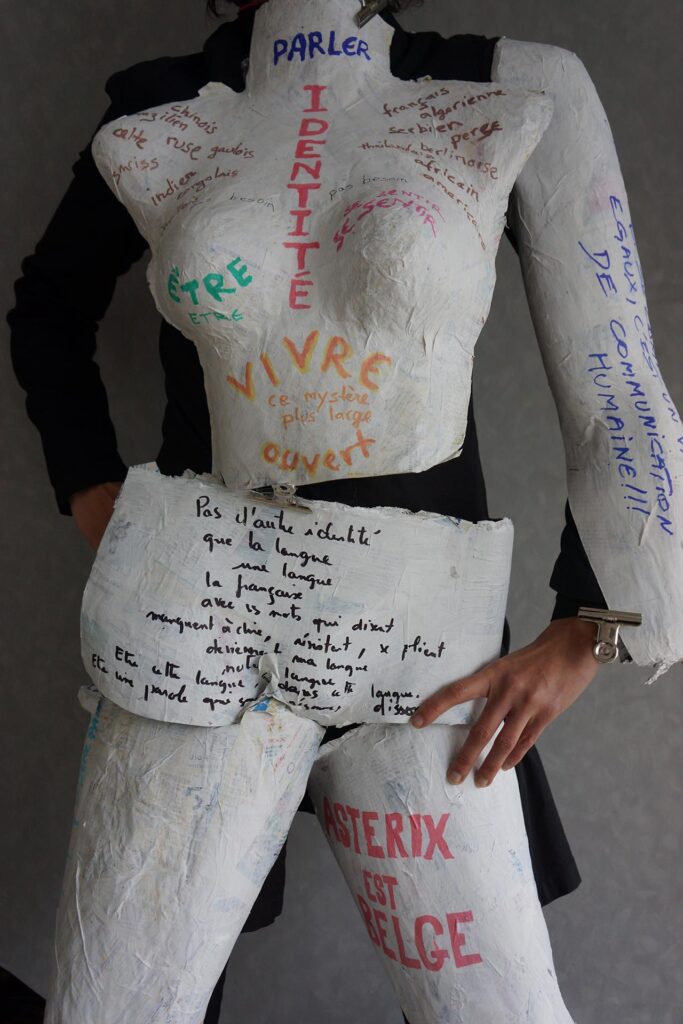 PARLER
IDENTITÉ
chinois
celte russe gaulois
suriss
indien congolais
besoin
français algérienne
serbien perse
thaïlandais berlinoise
africain
americaine
pas besoin
SE SENTIR
SE SENTIR
ÊTRE
ETRE
VIVRE
ce mystère
plus large
ouvert
ÉGAUX, C'EST UN
DE COMMUNICATION
HUMAINE!!!
Pas d'autre identité
que la langue
une langue
la française
avec ses mots qui disent
manquent à dire, résistent, se plient
devienne ma langue
notre langue
Etre cette langue dans cette langue.
Etre une parole que
ASTERIX
EST
BELGE